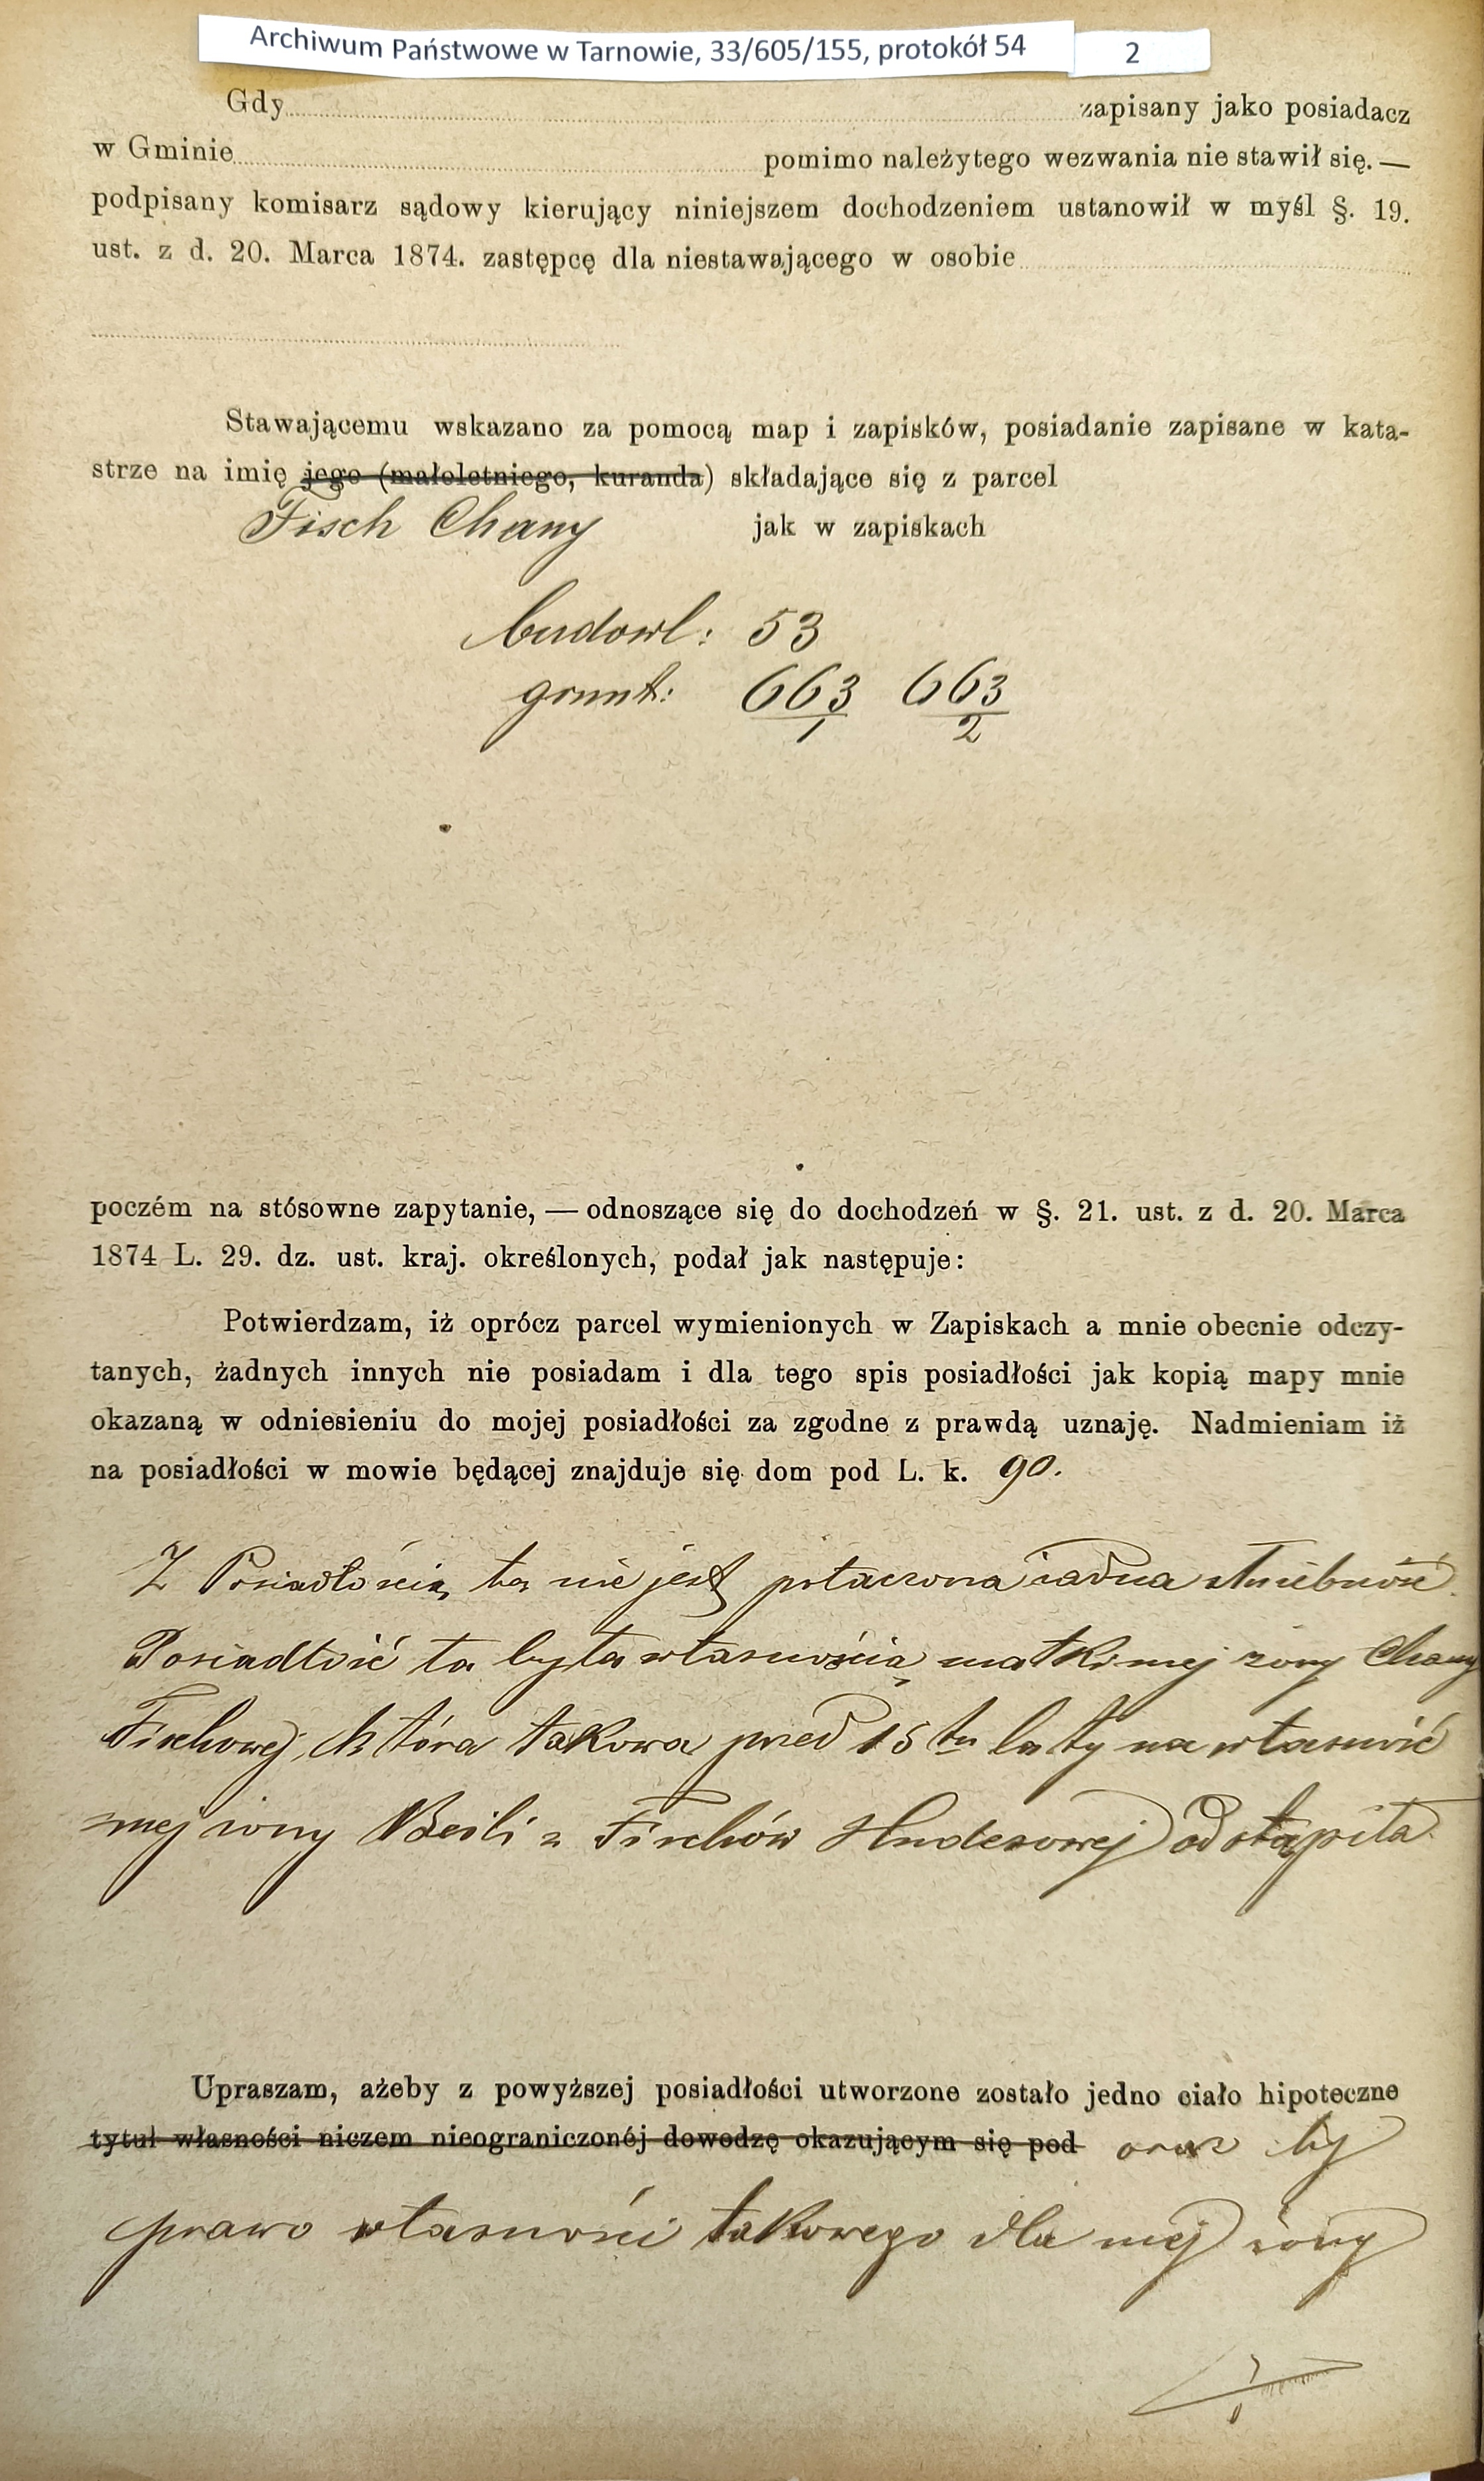 Archiwum Państwowe w Tarnowie, 33/605/155, protokół 54
2
Gdy zapisany jako posiadacz
w Gminie pomimo należytego wezwania nie stawił się. —
podpisany komisarz sądowy kierujący niniejszem dochodzeniem ustanowił w myśl §. 19.
ust. z d. 20. Marca 1874. zastępcę dla niestawającego w osobie
Stawającemu wskazano za pomocą map i zapisków, posiadanie zapisane w kata-
strze na imię jego (małoletniego, kuranda) składające się z parcel
Fisch Chany jak w zapiskach
budowl: 53
grunt: 663/1 663/2
poczém na stósowne zapytanie, — odnoszące się do dochodzeń w §. 21. ust. z d. 20. Marca
1874 L. 29. dz. ust. kraj. określonych, podał jak następuje:
Potwierdzam, iż oprócz parcel wymienionych w Zapiskach a mnie obecnie odczy-
tanych, żadnych innych nie posiadam i dla tego spis posiadłości jak kopią mapy mnie
okazaną w odniesieniu do mojej posiadłości za zgodne z prawdą uznaję. Nadmieniam iż
na posiadłości w mowie będącej znajduje się dom pod L. k. 90.
Z Posiadłością tą nie jest połaczona żadna służebność.
Posiadłość ta była własnością matki mej żony Chany
Fischowej, która takowa przed 15tu laty na własność
mej żony Beili z Fischów Hudesowej odstąpiła.
Upraszam, ażeby z powyższej posiadłości utworzone zostało jedno ciało hipoteczne
tytuł własności niczem nieograniczonéj dowodzę okazującym się pod oraz by
prawo własności takowego dla mej żony